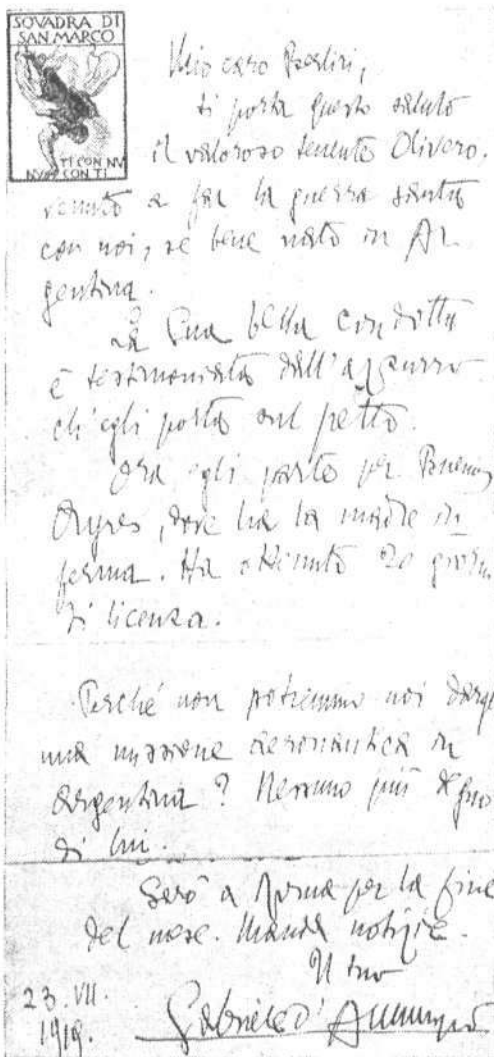 SQVADRA DI
SAN MARCO
TI CON NV
NVS CON TI
Mio caro
ti porta questo saluto
il valoroso tenente Olivero,
venuto a far la guerra santa
con noi, se bene nato in Ar
gentina.
La sua bella condotta
è testimoniata dall'azzurro
ch'egli porta sul petto.
Ora egli parte per Buenos
Ayres, dove ha la madre in
ferma. Ha ottenuto 20 giorni
di licenza.
Perché non potremmo noi dargli
una missione aeronautica in
Argentina? Nessuno più degno
di lui.
Sarò a Roma per la fine
del mese. Manda notizie.
Il tuo
Gabriele d'Annunzio
23. VII.
1919.